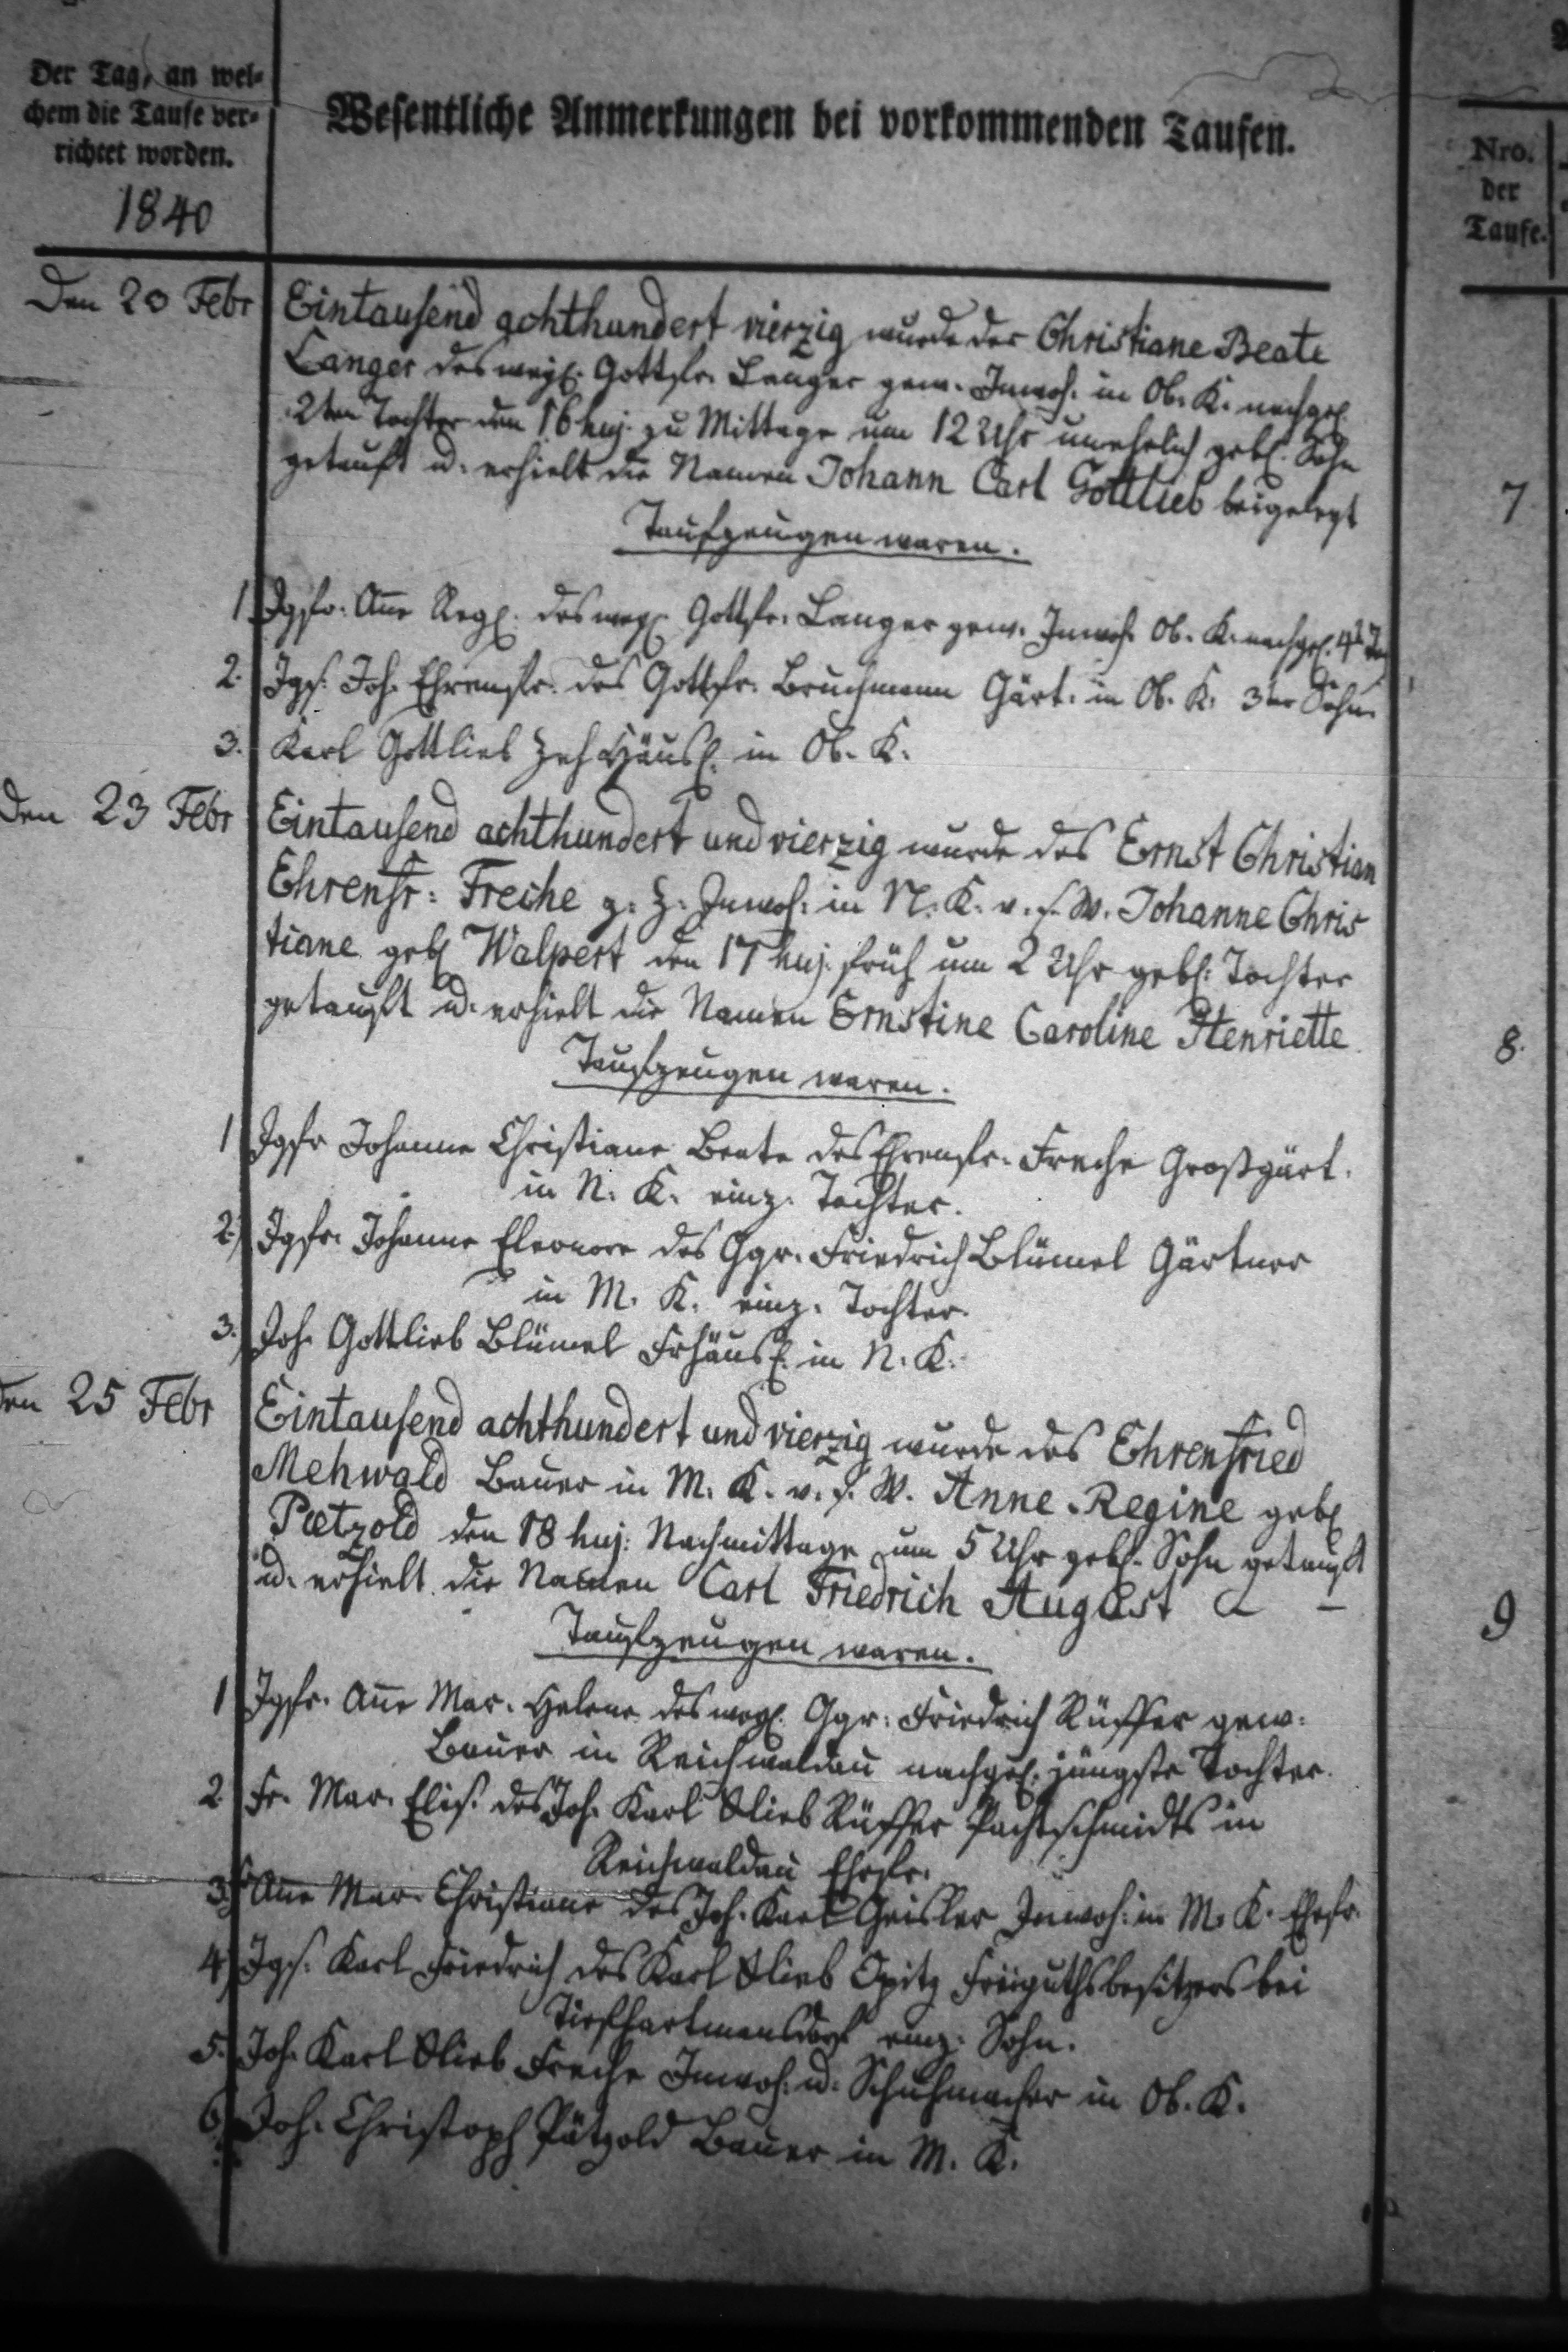 Der Tag, an wel-
chem die Taufe ver-
richtet worden.
1840
Wesentliche Anmerkungen bei vorkommenden Taufen.
Nro.
der
Taufe.
Den 20 Febr
Eintausend achthundert vierzig wurde der Christiane Beate
Langer des weyl. Gottfr. Langer gew. Inwoh. in Ob. K. nachgel.
2ten Tochter den 16 huj. zu Mittage um 12 Uhr unehelich gebl. Sohn
getauft u. erhielt die Namen Johann Carl Gottlieb beigelegt
7
Taufzeugen waren.
1 Jgfr. Anne Regl. des weyl. Gottfr. Langer gew. Inwoh. Ob. K. nachgel. 4te
2. Jgs. Joh. Ehrenfr. des Gottfr. Bruchmann Gärt. in Ob. K. 3ter Sohn
3. Karl Gottlieb Zeh Häusl. in Ob. K.
Den 23 Febr
Eintausend achthundert und vierzig wurde des Ernst Christian
Ehrenfr: Freche z. Z. Inwoh. in N. K. v. s. W. Johanne Chris
tiane gebl Walpert den 17 huj. früh um 2 Uhr gebl. Tochter
getauft u. erhielt die Namen Ernstine Caroline Henriette
8.
Taufzeugen waren.
1 Jgfr Johanne Christiane Beate des Ehrenfr. Freche Großgärt.
in N. K. einz. Tochter.
2.) Jgfr. Johanne Eleonore des Ggr. Friedrich Blümel Gärtner
in M. K. einz. Tochter.
3.) Joh. Gottlieb Blümel Frhäusl. in N. K.
den 25 Febr
Eintausend achthundert und vierzig wurde des Ehrenfried
Mehwald Bauer in M. K. v. s. W. Anne Regine gebl
Pætzold den 18 huj: Nachmittage um 5 Uhr gebl. Sohn getauft
u. erhielt die Namen Carl Friedrich August
9
Taufzeugen waren.
1 Jgfr. Anne Mar. Helene des weyl. Ggr. Friedrich Rüffer gew.
Bauer in Reichwaldau nachgel. jüngste Tochter.
2 Fr. Mar. Elis. des Joh. Karl Glieb Rüffer Pachtschmidts in
Reichwaldau Ehefr.
3.) Anne Mar. Christiane des Joh. Karl Geisler Inwoh. in M. K. Ehefr.
4.) Jgs. Karl Friedrich des Karl Glieb Opitz Freiguthsbesitzers bei
Tiefhartmansdorf einz. Sohn.
5. Joh. Karl Glieb Freche Inwoh. u. Schuhmacher in Ob. K.
6. Joh. Christoph Pätzold Bauer in M. K.